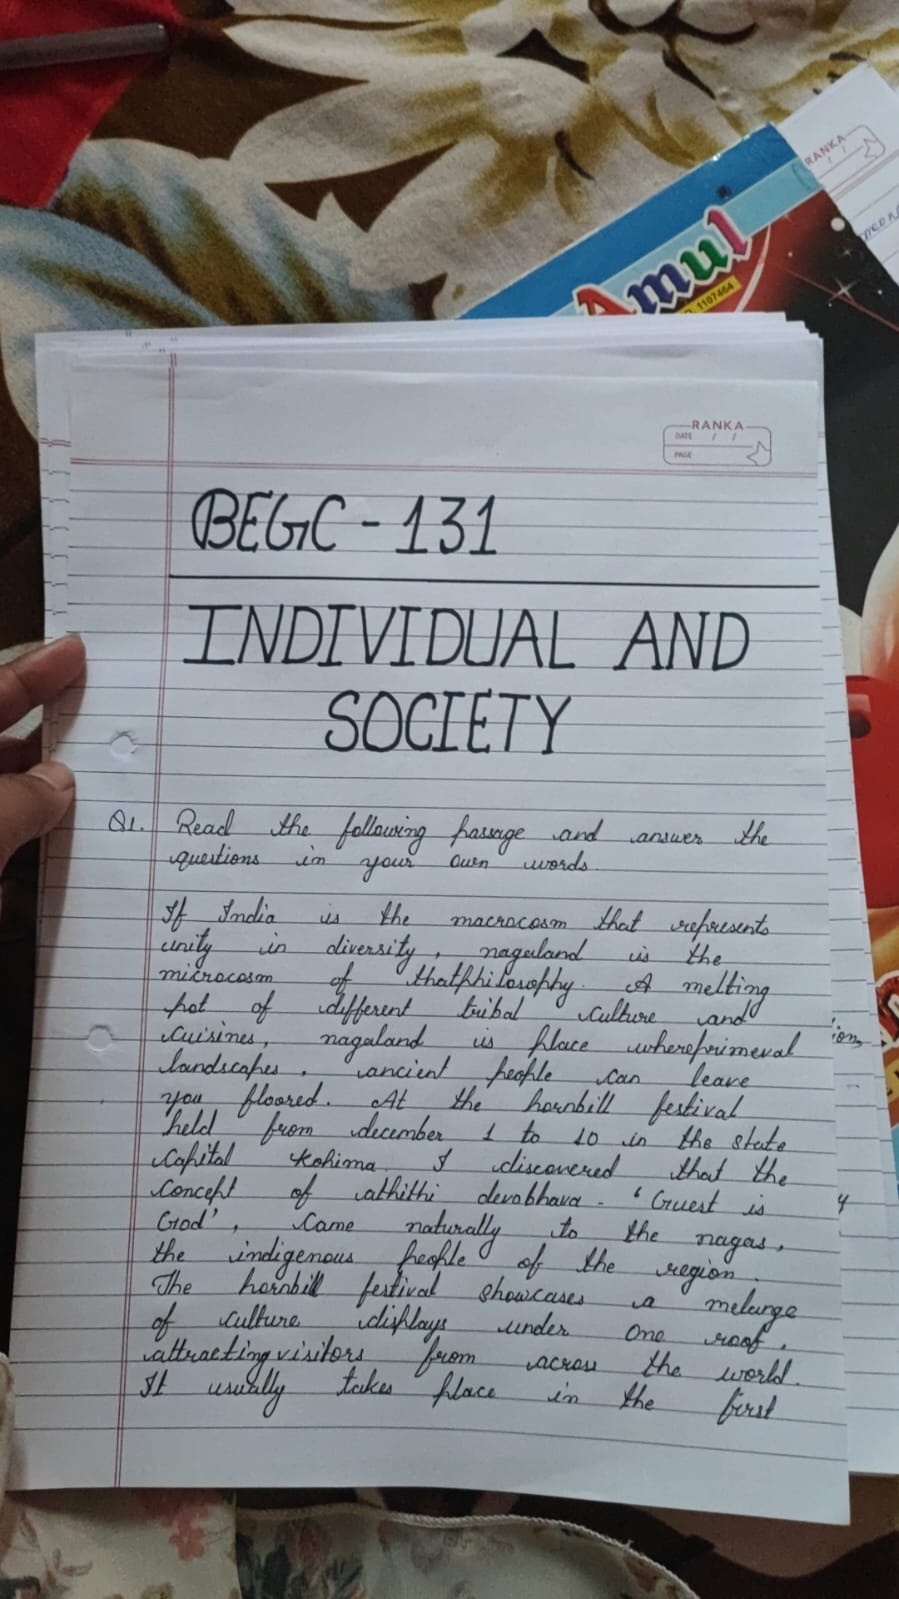 RANKA
Amul
1107464
RANKA
DATE / /
PAGE
BEGC-131
INDIVIDUAL AND
SOCIETY
Q1. Read the following passage and answer the
questions in your own words.
If India is the macrocosm that represents
unity in diversity, nagaland is the
microcosm of thatphilosophy. A melting
pot of different tribal culture and
cuisines, nagaland is place whereprimeval
landscapes, ancient people can leave
you floored. At the hornbill festival
held from december 1 to 10 in the state
capital kohima. I discovered that the
concept of athithi devobhava - 'Guest is
God', came naturally to the nagas,
the indigenous people of the region.
The hornbill festival showcases a melange
of culture displays under one roof,
attracting visitors from across the world.
It usually takes place in the first